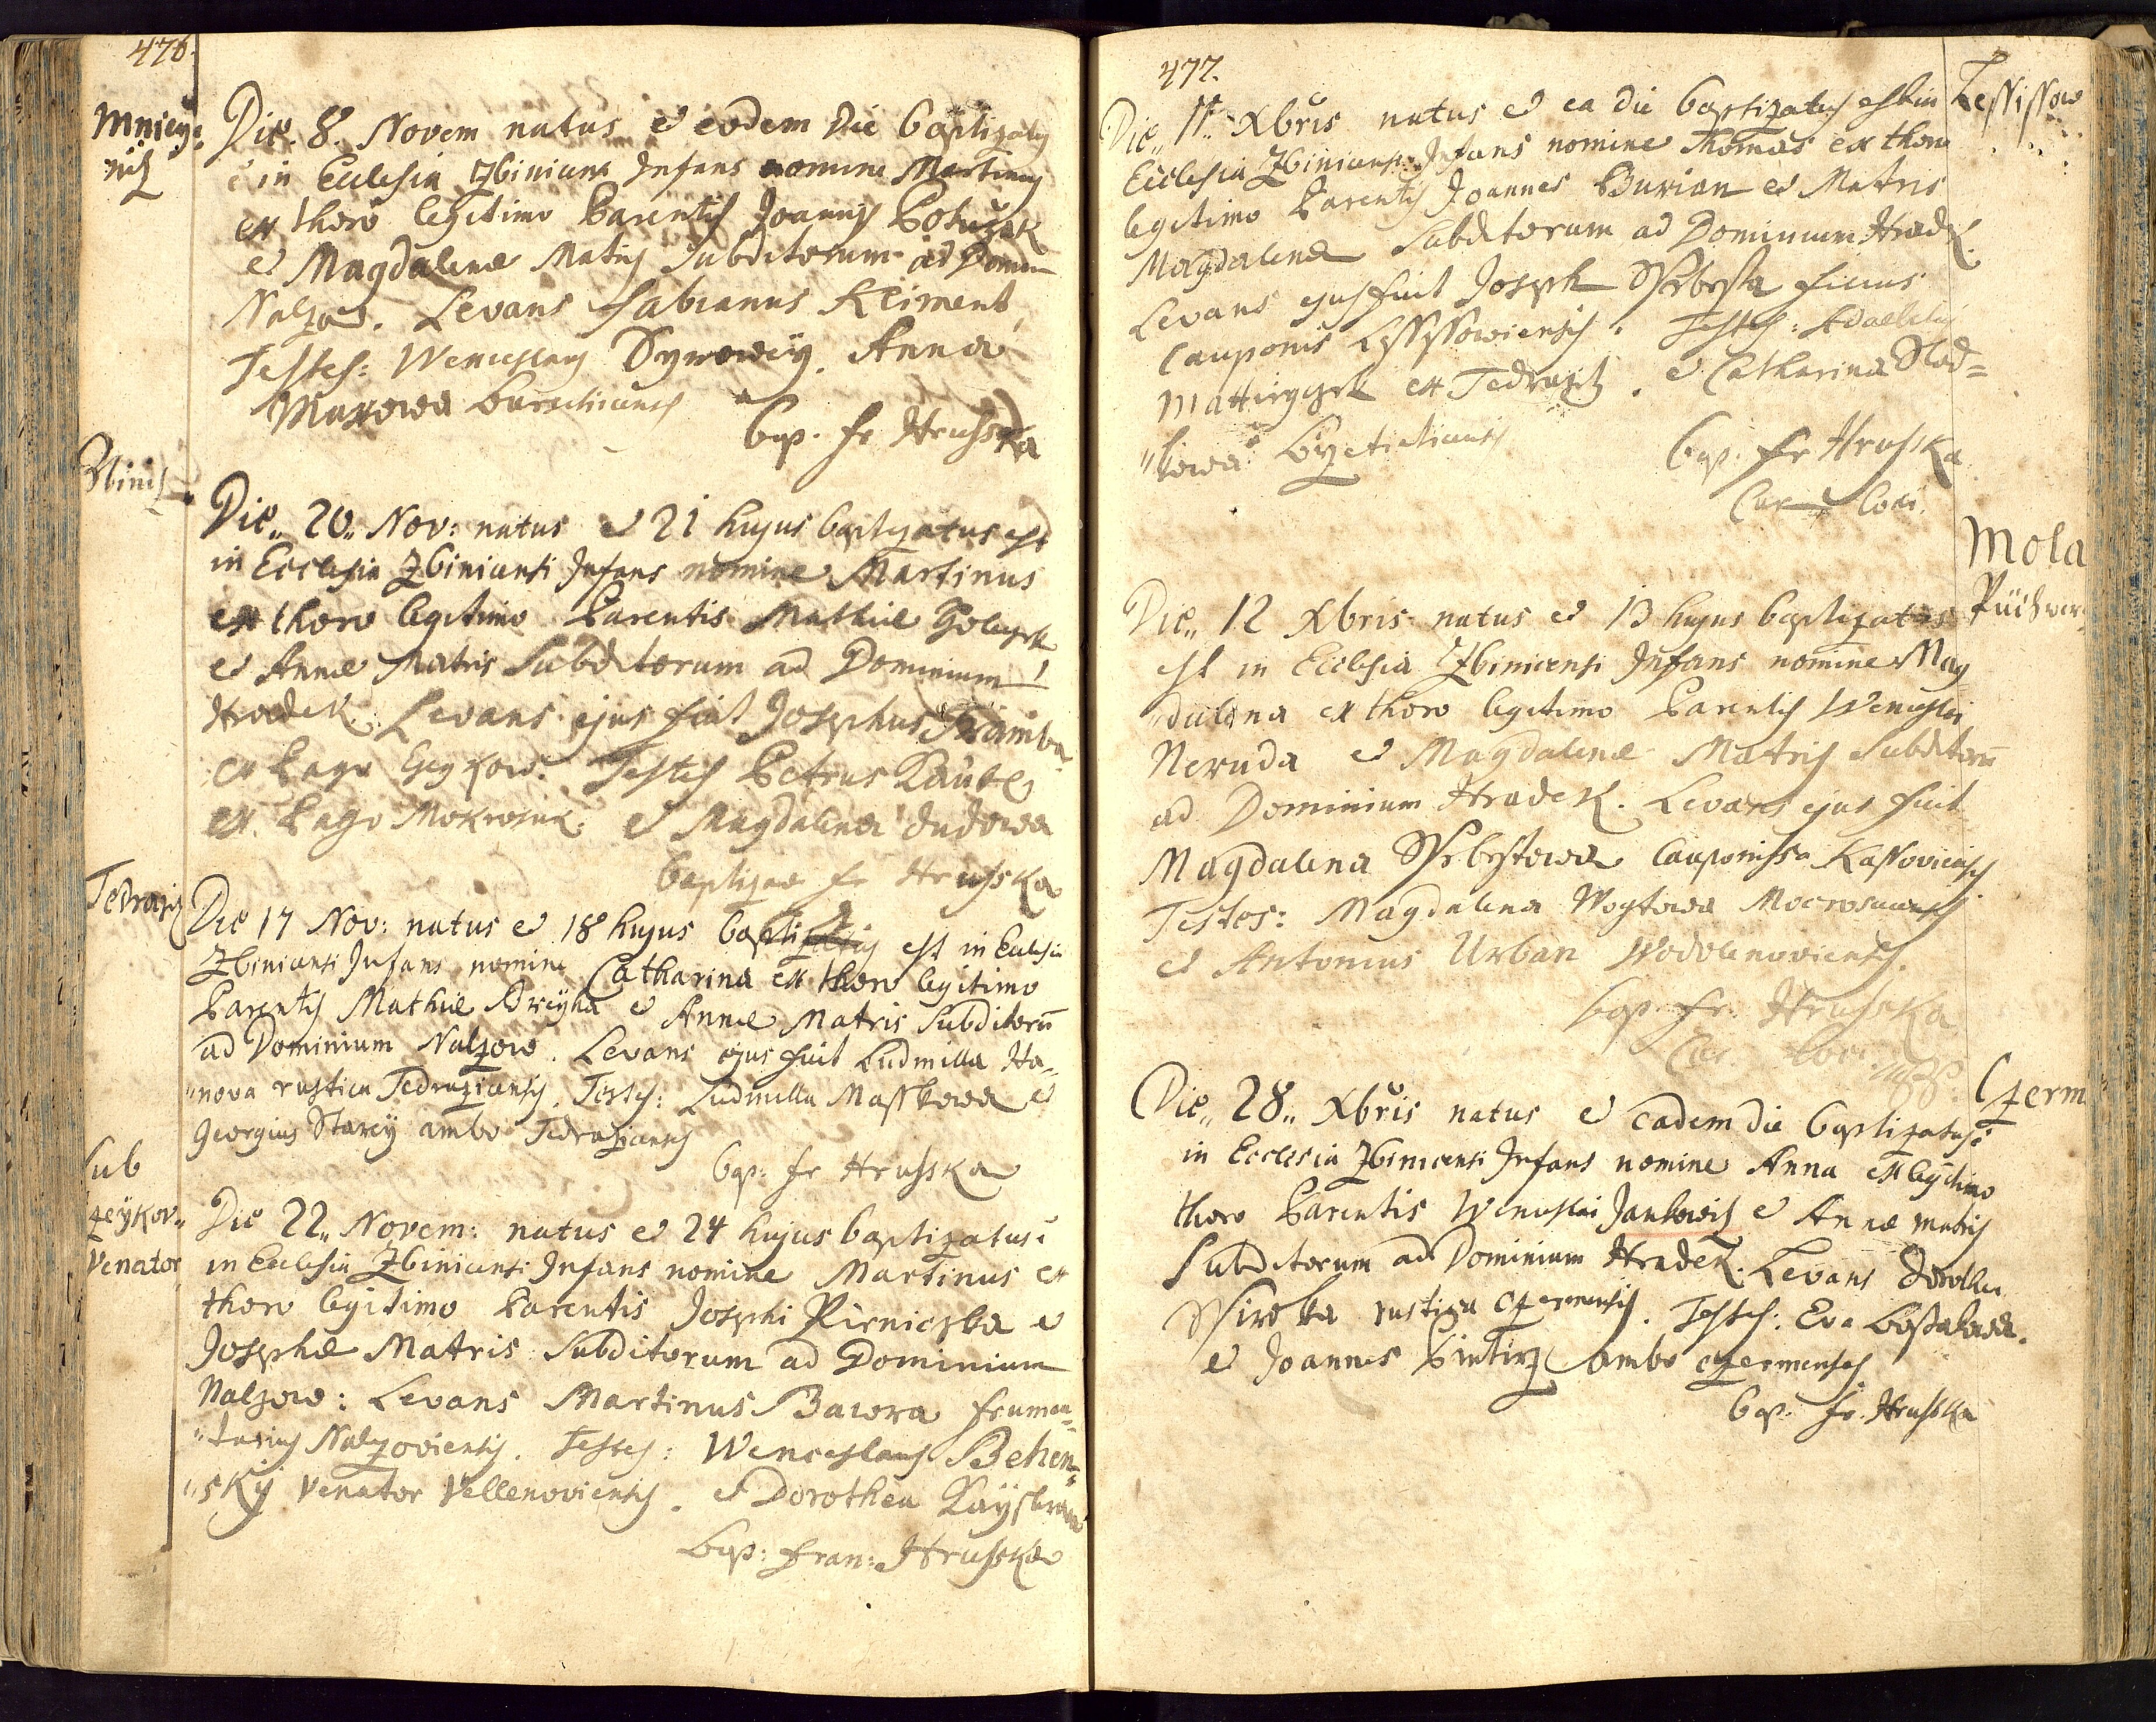 476.
Mnicy:
nitz
Die. 8. Novem natus et eodem Die baptizatus
ē in Ecclesia Zbiniens Infans nomine Martinus
ex thoro legitimo Parentis Joannis Potužak
et Magdalenæ Matris Subditorum ad Domin
Nalzow. Levans Fabianus Kliment,
Testes: Wenceslaus Syrowey. Anna
Maxowa
bap. Fr Hrusska
Die„ 20„ Nov: natus et 21 hujus baptizatus est
in Ecclesia Zbiniensi Infans nomine Martinus
ex thoro legitimo Parentis Mathiæ
et Annæ Matris Subditorum ad Dominium
Hradek. Levans ejus fuit Josephus
ex Pago Testes Petrus
ex. Pago Mokrosuk. et Magdalena dudowa
Baptizav Fr Hrusska
Tedrazitz
Die 17 Nov: natus et 18 hujus est in Eclesia
Zbiniensi Infans nomine Catharina ex thoro legitimo
Parentis Mathiæ et Annæ Matris Subditorū
ad Dominium Nalzow. Levans ejus fuit Ludmilla Ha„
„nova rustica Tedraziensis. Testes: Ludmilla Masskowa et
Georgius Starey ambo Tedrazienses
bap: Fr Hrusska
Sub
zeykov„
Venator
Die 22„ Novem: natus et 24 hujus baptizatus ē
in Ecclesia Zbiniensi Infans nomine Martinus ex
thoro legitimo Parentis Josephi et
Josephæ Matris Subditorum ad Dominium
Nalzow: Levans Martinus Bawra frumen„
„tarius Nalzoviensis. Testes: Wenceslaus Behen„
„skÿ Venator Vellenoviensis. et Dorothea
Bap: Fran: Hrusska
477.
Lessissow
Die„ 11 Xbris natus et ea die baptizatus est in
Ecclesia Zbiniensi Infans nomine Thomas ex thoro
legitimo Parentis Joannes Burian et Matris
Magdalena Subditorum ad Dominium Hradek.
Levans ejus fuit Joseph Ssebesta filius
Cauponis Testes: Adalbertus
ex Tedrazitz. et Catharina Slad=
„kowa
bap: Fr Hruska
Cur Loci.
Mola
Die„ 12 Xbris natus et 13 hujus baptizatus
est in Ecclesia Zbiniensi Infans nomine Mag
„dalena ex thoro legitimo Parentis Wenceslai
Neruda et Magdalenæ Matris Subditorū
ad Dominium Hradek. Levans ejus fuit
Magdalena Ssebestowa Cauponissa Kassoviensis
Testes: Magdalena Wogtowa Mocrosucensis
et Antonius Urban Wodolenoviensis.
bap. Fr. Hrusska
Cur. Loci
Czerm
Die„ 28„ Xbris natus et eadem die baptizatus ē
in Ecclesia Zbiniensi Infans nomine Anna ex legitimo
thoro Parentis Wenceslai Jankowitz et Annæ matris
Subditorum ad Dominium Hradek. Levans Dorothea
Ssiroka rustica Czermensis. Testes: Eva
et Joannes ambo czermenses
bap. fr. Hrusska